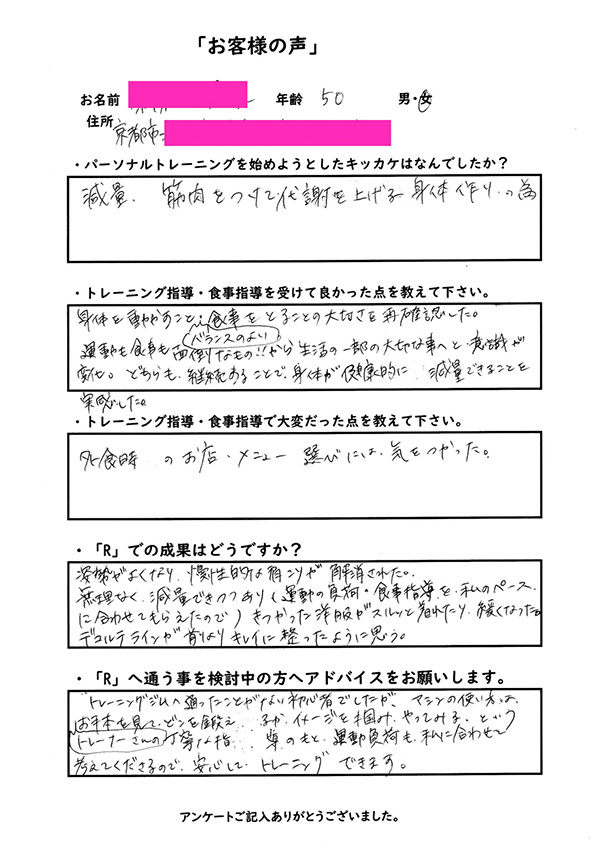 「お客様の声」
お名前 年齢 50 男・女
住所 京都市
・パーソナルトレーニングを始めようとしたキッカケはなんでしたか？
減量、筋肉をつけて代謝を上げる身体作り、の為
・トレーニング指導・食事指導を受けて良かった点を教えて下さい。
身体を動かすこと、食事をとることの大切さを再確認した。
バランスのよい
運動も食事も面倒なもの!!から生活の一部の大切な事へと意識が
変化。どちらも、継続することで、身体が健康的に 減量できることを
実感した。
・トレーニング指導・食事指導で大変だった点を教えて下さい。
外食時 のお店、メニュー 選びには、気をつかった。
・「R」での成果はどうですか？
姿勢がよくなり、慢性的な肩こりが解消された。
無理なく、減量できつつあり（運動の負荷・食事指導を、私のペース
に合わせてもらえたので）きつかった洋服がスルッと着れたり、緩くなった
デコルテラインが前よりキレイに整ったように思う。
・「R」へ通う事を検討中の方へアドバイスをお願いします。
トレーニングジムへ通ったことがない初心者でしたが、マシンの使い方は、
お手本を見て、どこを鍛え るか、イメージを掴み、やってみる、という
トレーナーさんの丁寧な指 導のもと、運動負荷も、私に合わせて
考えてくださるので、安心して、トレーニング できます。
アンケートご記入ありがとうございました。